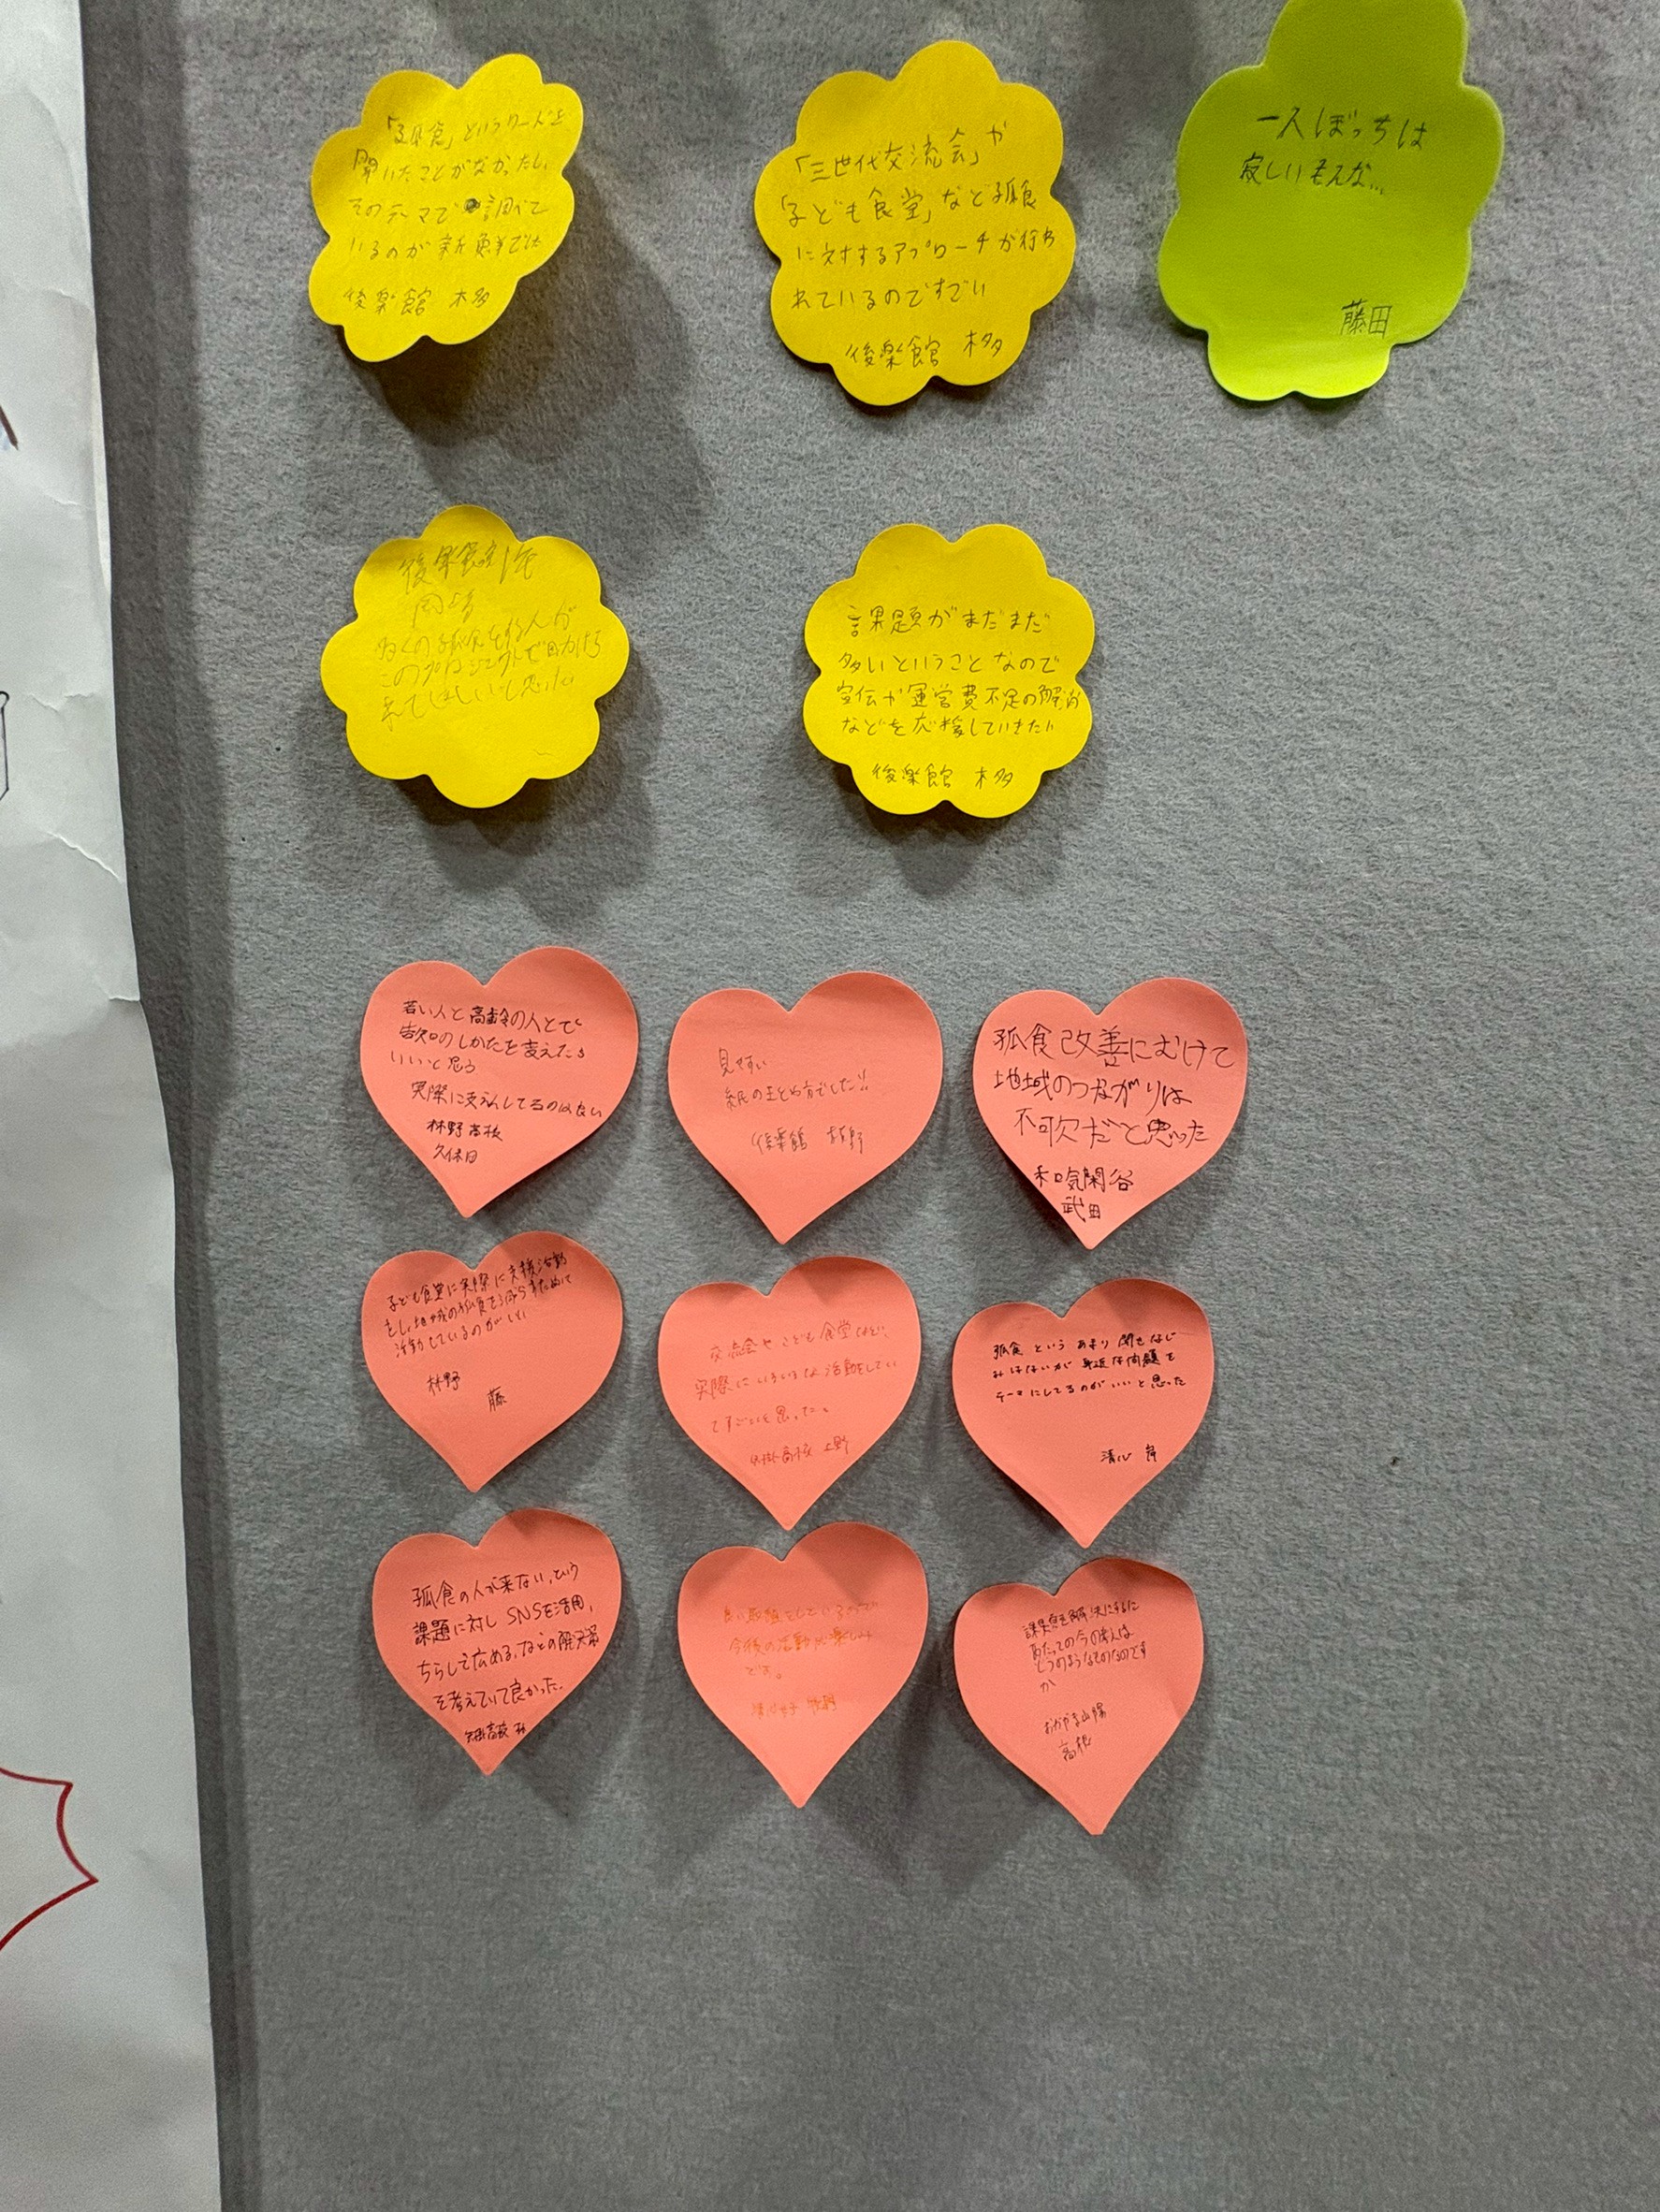 「孤食」というワードを
聞いたことがなかったし、
そのテーマで調べて
いるのが新鮮でした
後楽館 本多
「三世代交流会」や
「子ども食堂」など孤食
に対するアプローチが行わ
れているのですごい
後楽館 本多
一人ぼっちは
寂しいもんな…
藤田
後楽館 1年
多くの孤食を
このプロジェクトで助けら
れてほしいと思った
課題がまだまだ
多いということなので
宣伝や運営費不足の解消
などを応援していきたい
後楽館 本多
若い人と高齢の人とで
告知のしかたを変えたら
いいと思う
実際に支えんしてるのは良い
林野高校
久保田
見やすい
系のまとめ方でした!!
後楽館
孤食改善にむけて
地域のつながりは
不可欠だと思った
和気閑谷
武田
子ども食堂に実際に支援活動
をし、地域の孤食を減らすために
活動しているのがいい
林野
藤
交流会やこども食堂など、
実際にいろいろな活動をしてい
てすごいと思った。
矢掛高校 上野
孤食という あまり聞きなじ
みはないが 身近な問題を
テーマにしてるのがいいと思った
清心
孤食の人が来ない、という
課題に対し SNSを活用、
ちらしで広める、などの解決策
を考えていて良かった。
矢掛高校
良い取組をしているので
今後の活動が楽しみ
です。
清心女子
課題を解決するに
あたっての今の
どのようなものなのです
か
おかやま山陽
高根